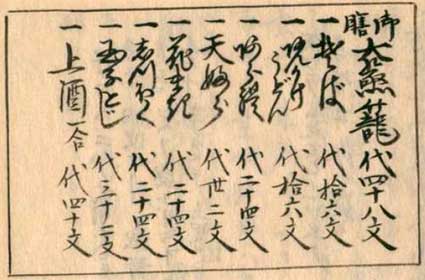 御膳大蒸籠 代四十八文
一そば 代拾六文
一あんかけうどん 代拾六文
一あられ 代二十四文
一天ぷら 代卅二文
一花まき 代二十四文
一しっぽく 代二十四文
一玉子とじ 代三十二文
一上酒一合 代四十文